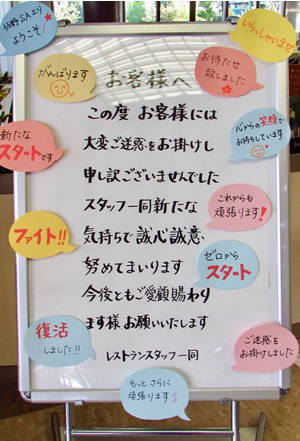 佐野SAより
ようこそ!
いらっしゃいませ
がんばります
お待たせ
致しました
お客様へ
この度 お客様には
大変ご迷惑をお掛けし
申し訳ございませんでした
スタッフ一同新たな
気持ちで誠心誠意、
努めてまいります
今後ともご愛顧賜わり
ます様お願いいたします
レストランスタッフ一同
心からの笑顔で
お待ちしています
新たな
スタートです
これからも
頑張ります!
ファイト!!
ゼロから
スタート
復活
しました!!
ご迷惑を
お掛けしました
もっとさらに
頑張ります